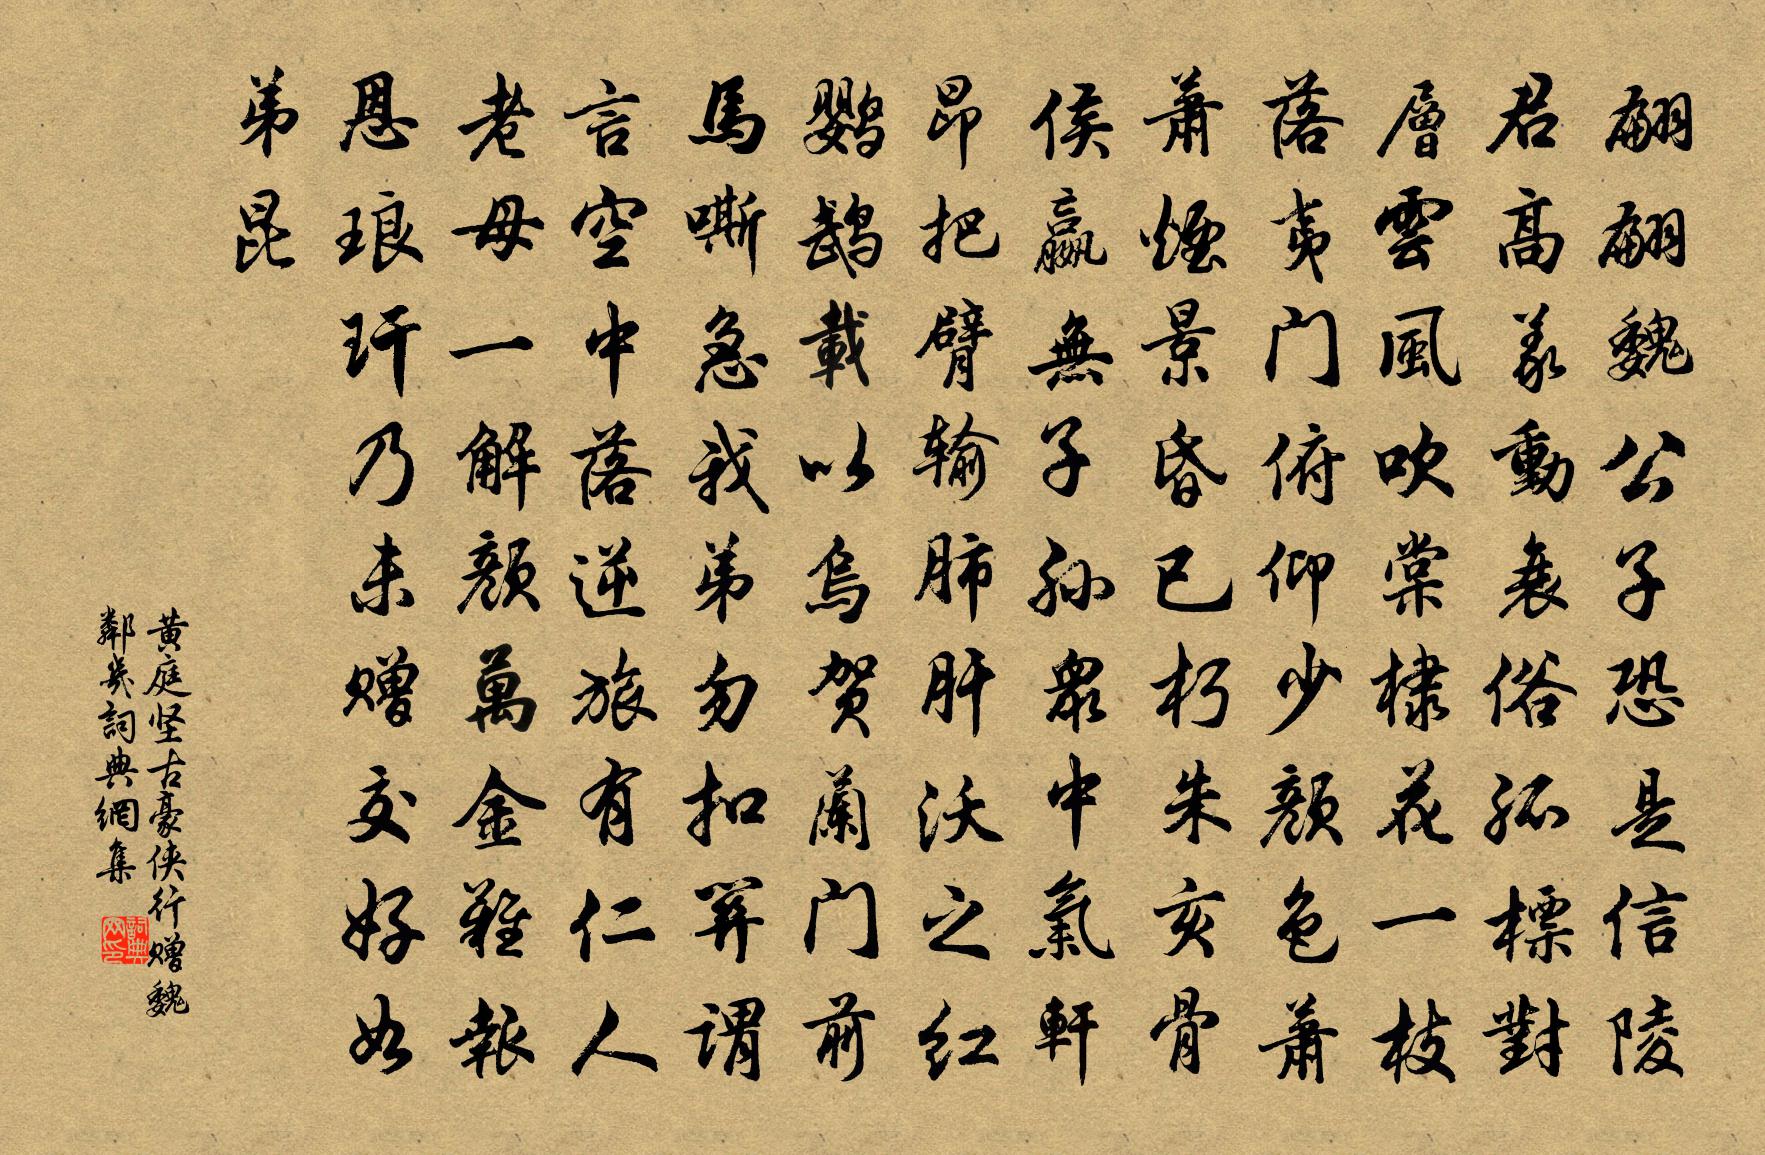 翩翩魏公子恐是信陵
君高義動衰俗孤標對
層雲風吹棠棣花一枝
落夷门俯仰少顏色萧
萧煙景昏已朽朱亥骨
侯嬴無子孙眾中氣軒
昂把臂输肺肝沃之红
鹦鹉載以烏贺蘭门前
馬嘶急我弟勿扣关謂
言空中落逆旅有仁人
老母一解顏萬金難報
恩琅玕乃未赠交好如
弟昆
黄庭坚古豪侠行赠魏
鄰幾詞典網集
詞典网印